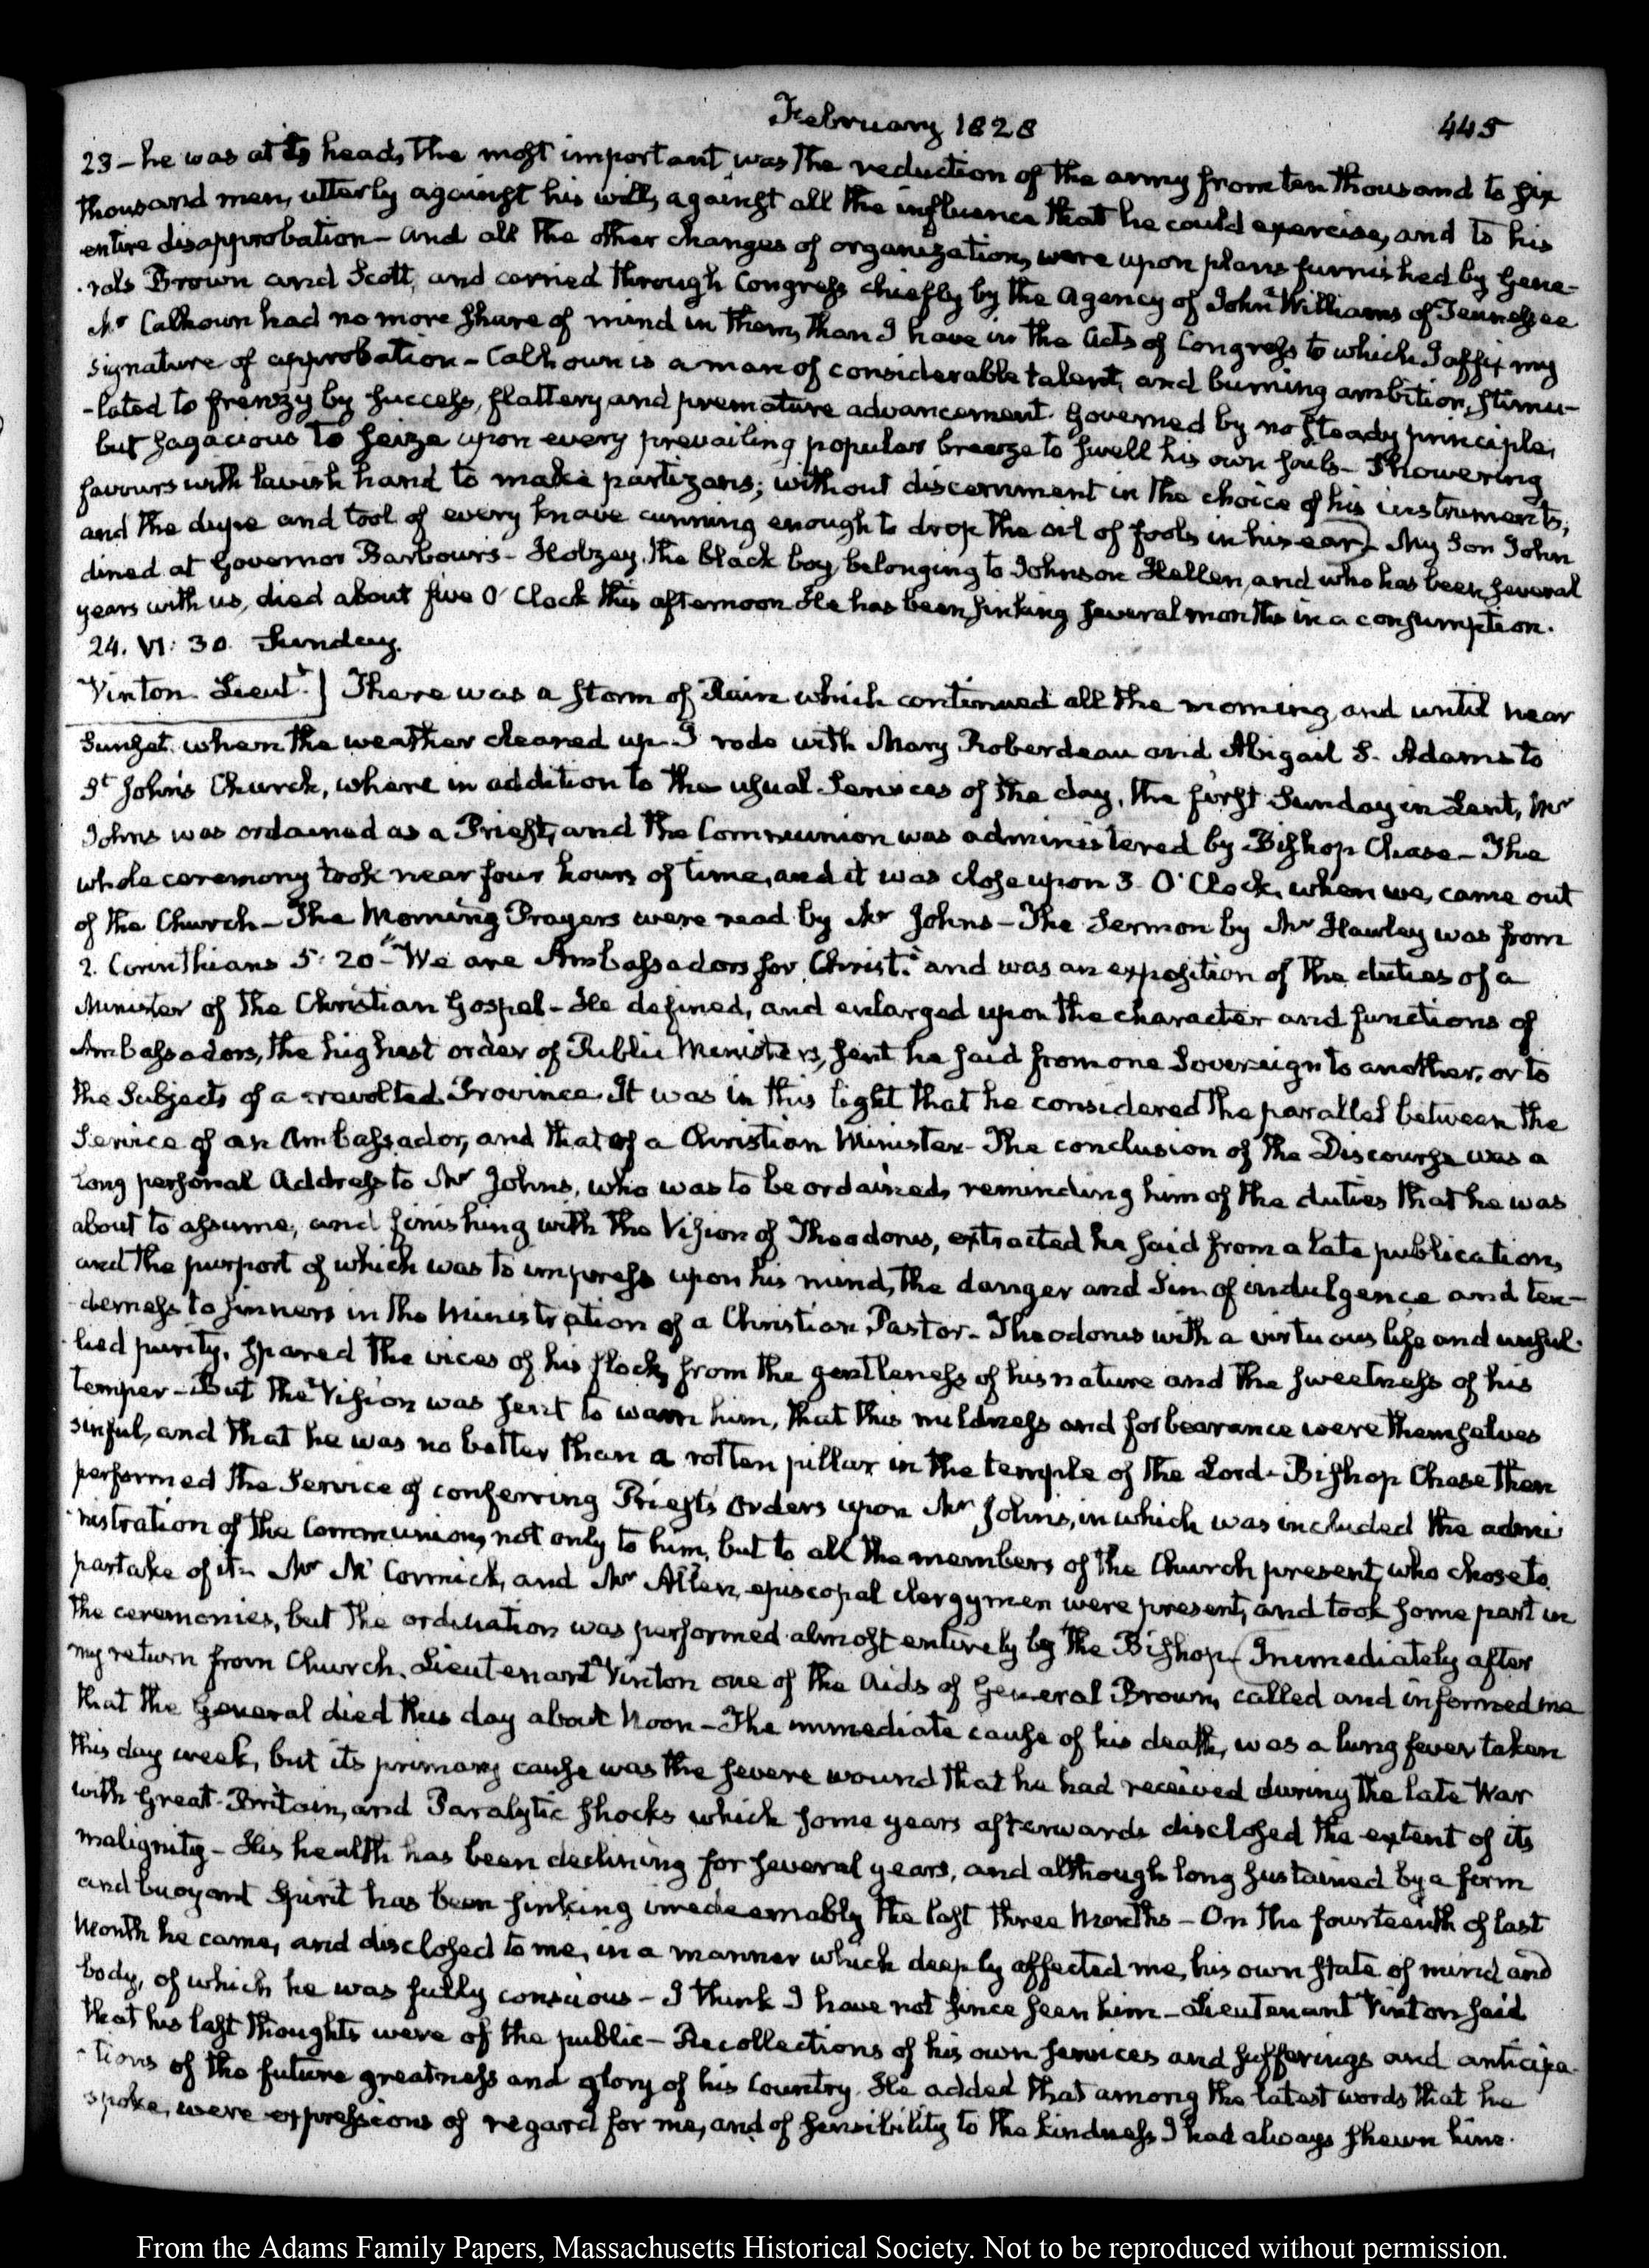 February 1828
445
23 - he was at its head, the most important was the reduction of the army from ten thousand to six
thousand men, utterly against his will, against all the influence that he could exercise, and to his
entire disapprobation - and all the other changes of organization, were upon plans furnished by Gene-
-rals Brown and Scott, and carried through Congress chiefly by the Agency of John Williams of Tennessee
Mr Calhoun had no more share of mind in them, than I have in the Acts of Congress to which I affix my
signature of approbation - Calhoun is a man of considerable talent, and burning ambition, stimu-
-lated to frenzy by success, flattery and premature advancement. Governed by no steady principle,
but sagacious to seize upon every prevailing popular breeze to swell his own sails - Showering
favours with lavish hand to make partizans; without discernment in the choice of his instruments;
and the dupe and tool of every knave cunning enough to drop the oil of fools in his ear) - My Son John
dined at Governor Barbour's - Holzey, the black boy belonging to Johnson Hellen, and who has been several
years with us, died about five O'Clock this afternoon He has been sinking several months in a consumption.
24. VI: 30. Sunday.
Vinton. Lieutt.] There was a storm of Rain which continued all the morning, and until near
Sunset, when the weather cleared up - I rode with Mary Roberdeau and Abigail S. Adams to
St Johns Church, where in addition to the usual Services of the day, the first Sunday in Lent, Mr
Johns was ordained as a Priest, and the Communion was administered by Bishop Chase - The
whole ceremony took near four hours of time, and it was close upon 3. O'Clock, when we, came out
of the Church - The Morning Prayers were read by Mr Johns - The Sermon by Mr Hawley was from
2. Corinthians 5: 20 - "We are Ambassadors for Christ." and was an exposition of the duties of a
Minister of the Christian Gospel - He defined, and enlarged upon the character and functions of
Ambassadors, the highest order of Public Ministers, sent he said from one Sovereign to another, or to
the Subjects of a revolted Province. It was in this light that he considered the parallel between the
Service of an Ambassador, and that of a Christian Minister - The conclusion of the Discourse was a
long personal Address to Mr Johns, who was to be ordained, reminding him of the duties that he was
about to assume, and finishing with the Vision of Theodorus, extracted he said from a late publication,
and the purport of which was to impress upon his mind, the danger and Sin of indulgence and ten-
-derness to sinners in the Ministration of a Christian Pastor - Theodorus with a virtuous life and unsul-
-lied purity, spared the vices of his flock, from the gentleness of his nature and the sweetness of his
temper - But the Vision was sent to warn him, that this mildness and forbearance were themselves
sinful, and that he was no better than a rotten pillar in the temple of the Lord - Bishop Chase then
performed the Service of conferring Priest's Orders upon Mr Johns, in which was included the admi
-nistration of the Communion, not only to him, but to all the members of the Church present, who chose to
partake of it - Mr McCormick, and Mr Allen, episcopal clergymen were present, and took some part in
the ceremonies, but the ordination was performed almost entirely by the Bishop - (Immediately after
my return from Church. Lieutenant Vinton one of the Aids of General Brown, called and informed me
that the General died this day about Noon - The immediate cause of his death, was a lung fever taken
this day week, but its primary cause was the severe wound that he had received during the late War
with Great-Britain, and Paralytic shocks which some years afterwards disclosed the extent of its
malignity - His health has been declining for several years, and although long sustained by a firm
and buoyant Spirit has been sinking irredeemably the last three Months - On the fourteenth of last
Month he came, and disclosed to me, in a manner which deeply affected me, his own state of mind and
body, of which he was fully conscious - I think I have not since seen him - Lieutenant Vinton said
that his last thoughts were of the public - Recollections of his own services and sufferings and anticipa-
-tions of the future greatness and glory of his Country. He added that among the latest words that he
spoke, were expressions of regard for me, and of sensibility to the kindness I had always shewn him.
From the Adams Family Papers, Massachusetts Historical Society. Not to be reproduced without permission.